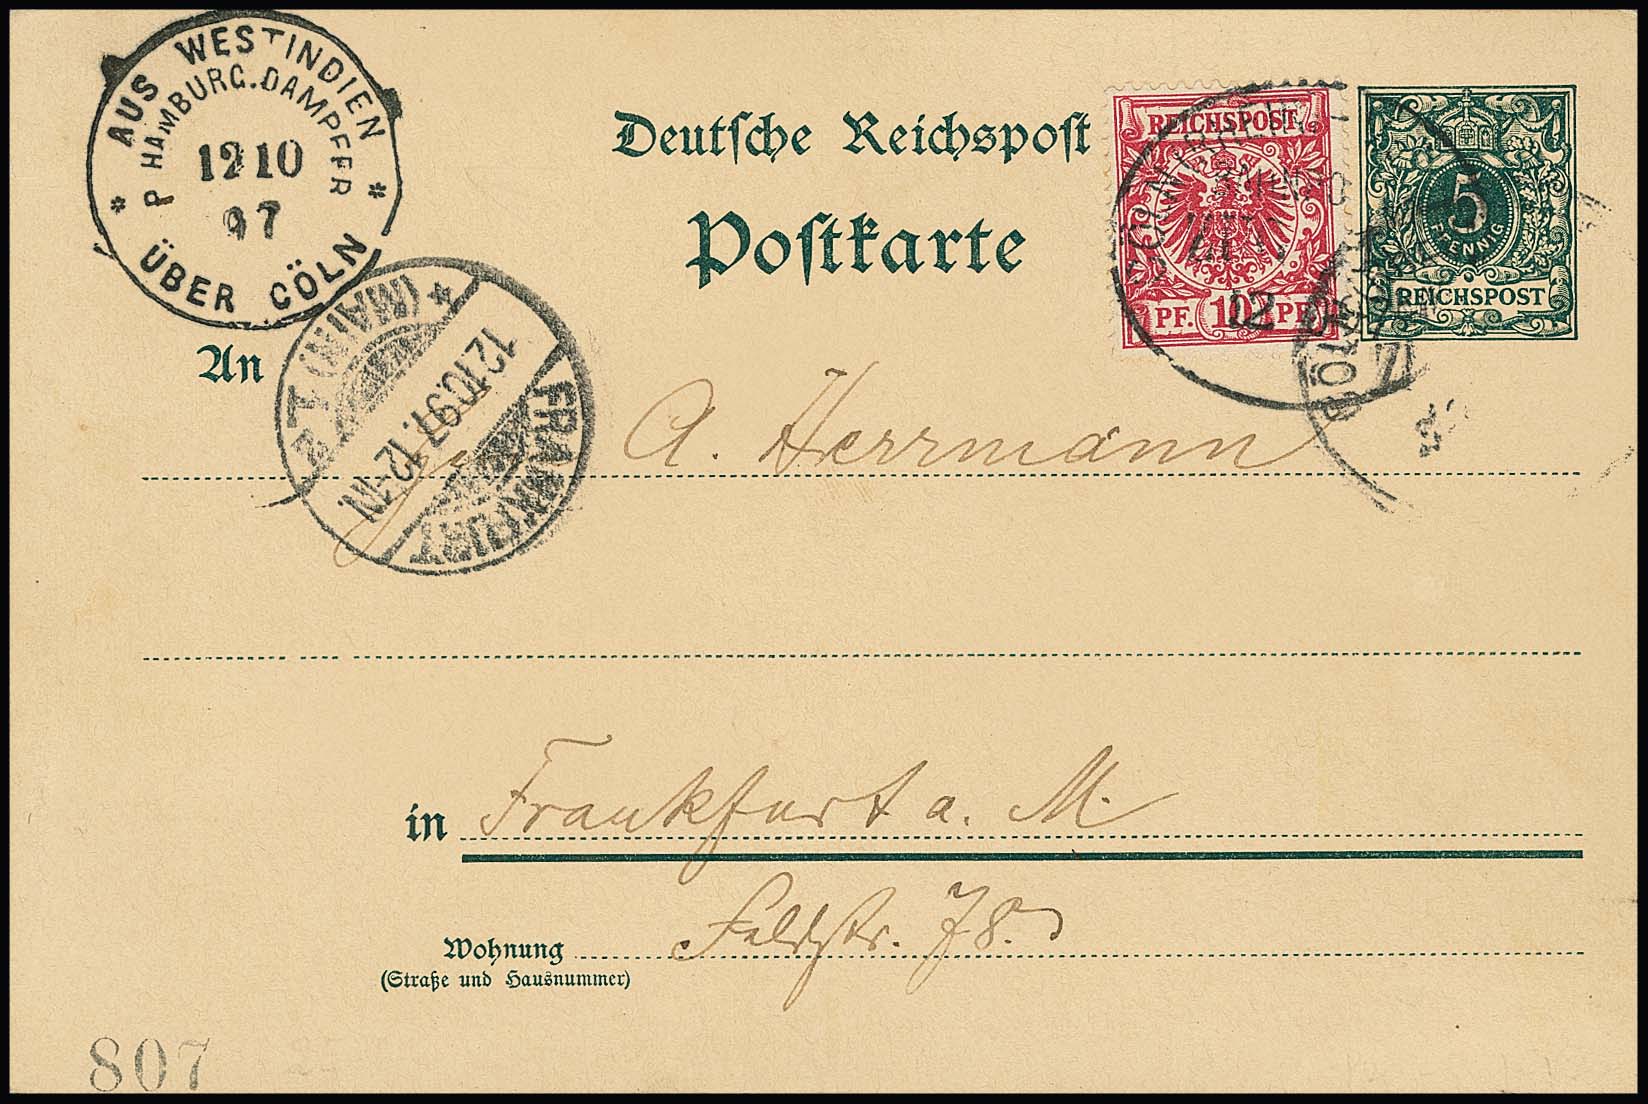 AUS WESTINDIEN
P HAMBURG. DAMPFER
12 10
97
ÜBER CÖLN
Deutsche Reichspost
Postkarte
REICHSPOST
PF. 10 PF.
12
5
PFENNIG
REICHSPOST
An
FRANKFURT
(MAIN)
12.10.97. 12-1N.
A. Herrmann
in Frankfurt a. M.
Wohnung Feldstr. 78.
(Straße und Hausnummer)
807